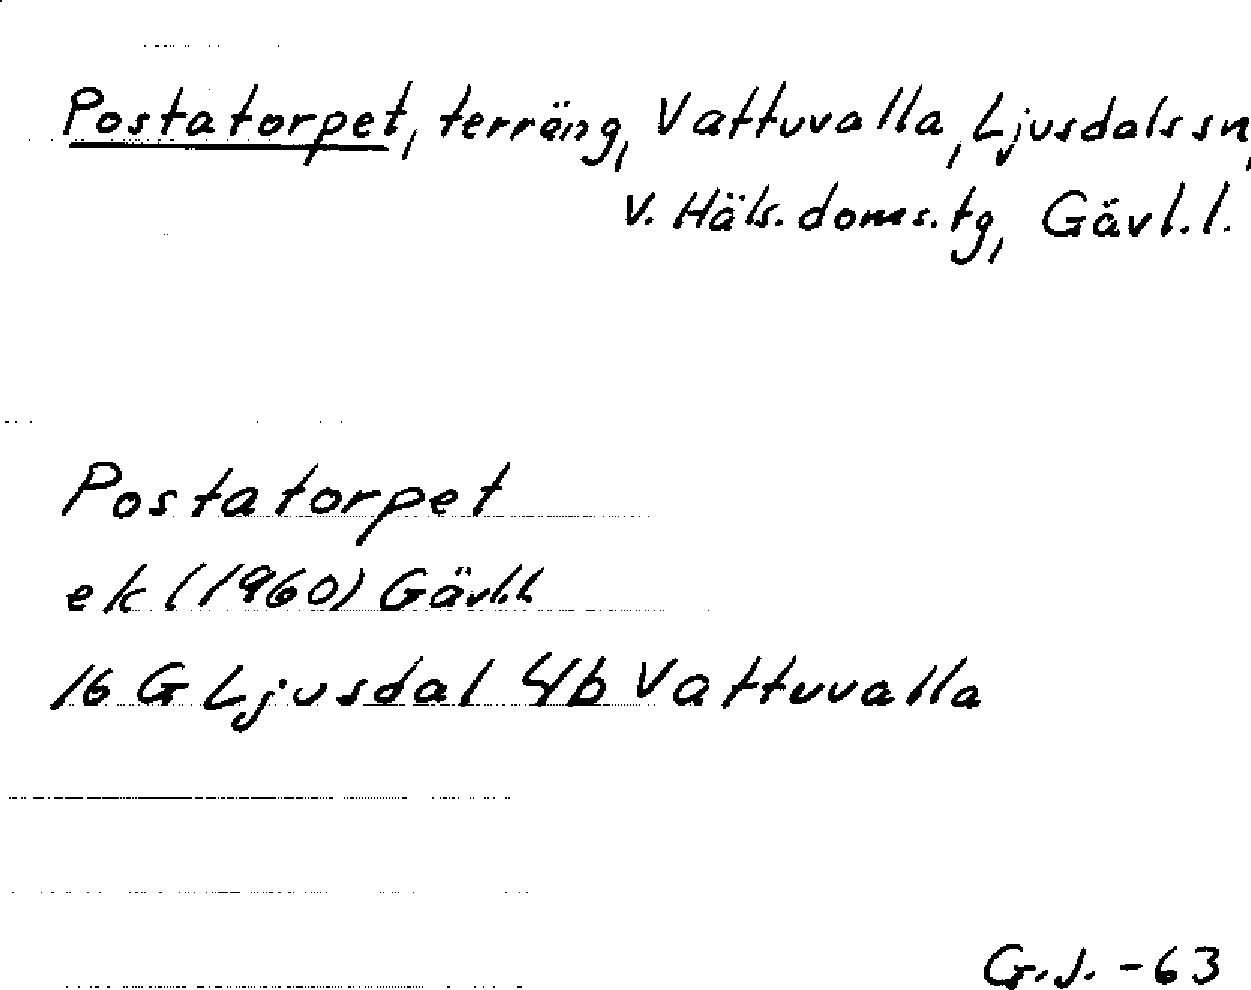 Postatorpet, terräng, Vattuvalla, Ljusdals sn,
V. Häls. doms. tg, Gävl. l.
Postatorpet
ek (1960) Gävl.l.
16 G Ljusdal 4b Vattuvalla
G. J. -63